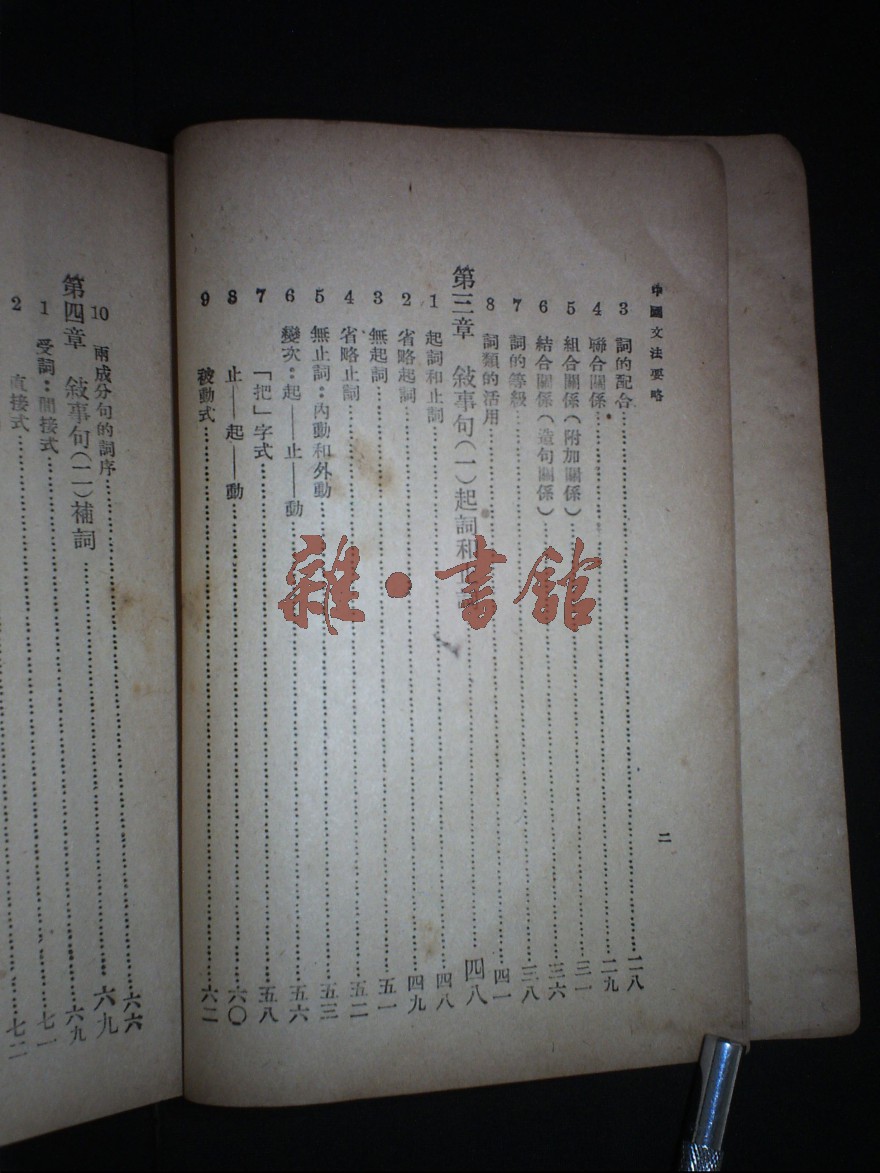 中國文法要略
3 詞的配合……二八
4 聯合關係……二九
5 組合關係(附加關係)……三一
6 結合關係(造句關係)……三六
7 詞的等級……三八
8 詞類的活用……四一
第三章 敍事句(一)起詞和……四八
1 起詞和止詞……四八
2 省略起詞……四九
3 無起詞……五一
4 省略止詞……五二
5 無止詞:內動和外動……五三
6 變次:起——止——動……五六
7 「把」字式……五八
8 止——起——動……六〇
9 被動式……六二
二
10 兩成分句的詞序……六六
第四章 敍事句(二)補詞……六九
1 受詞:間接式……六九
2 直接式……七一
七二
雜·書館